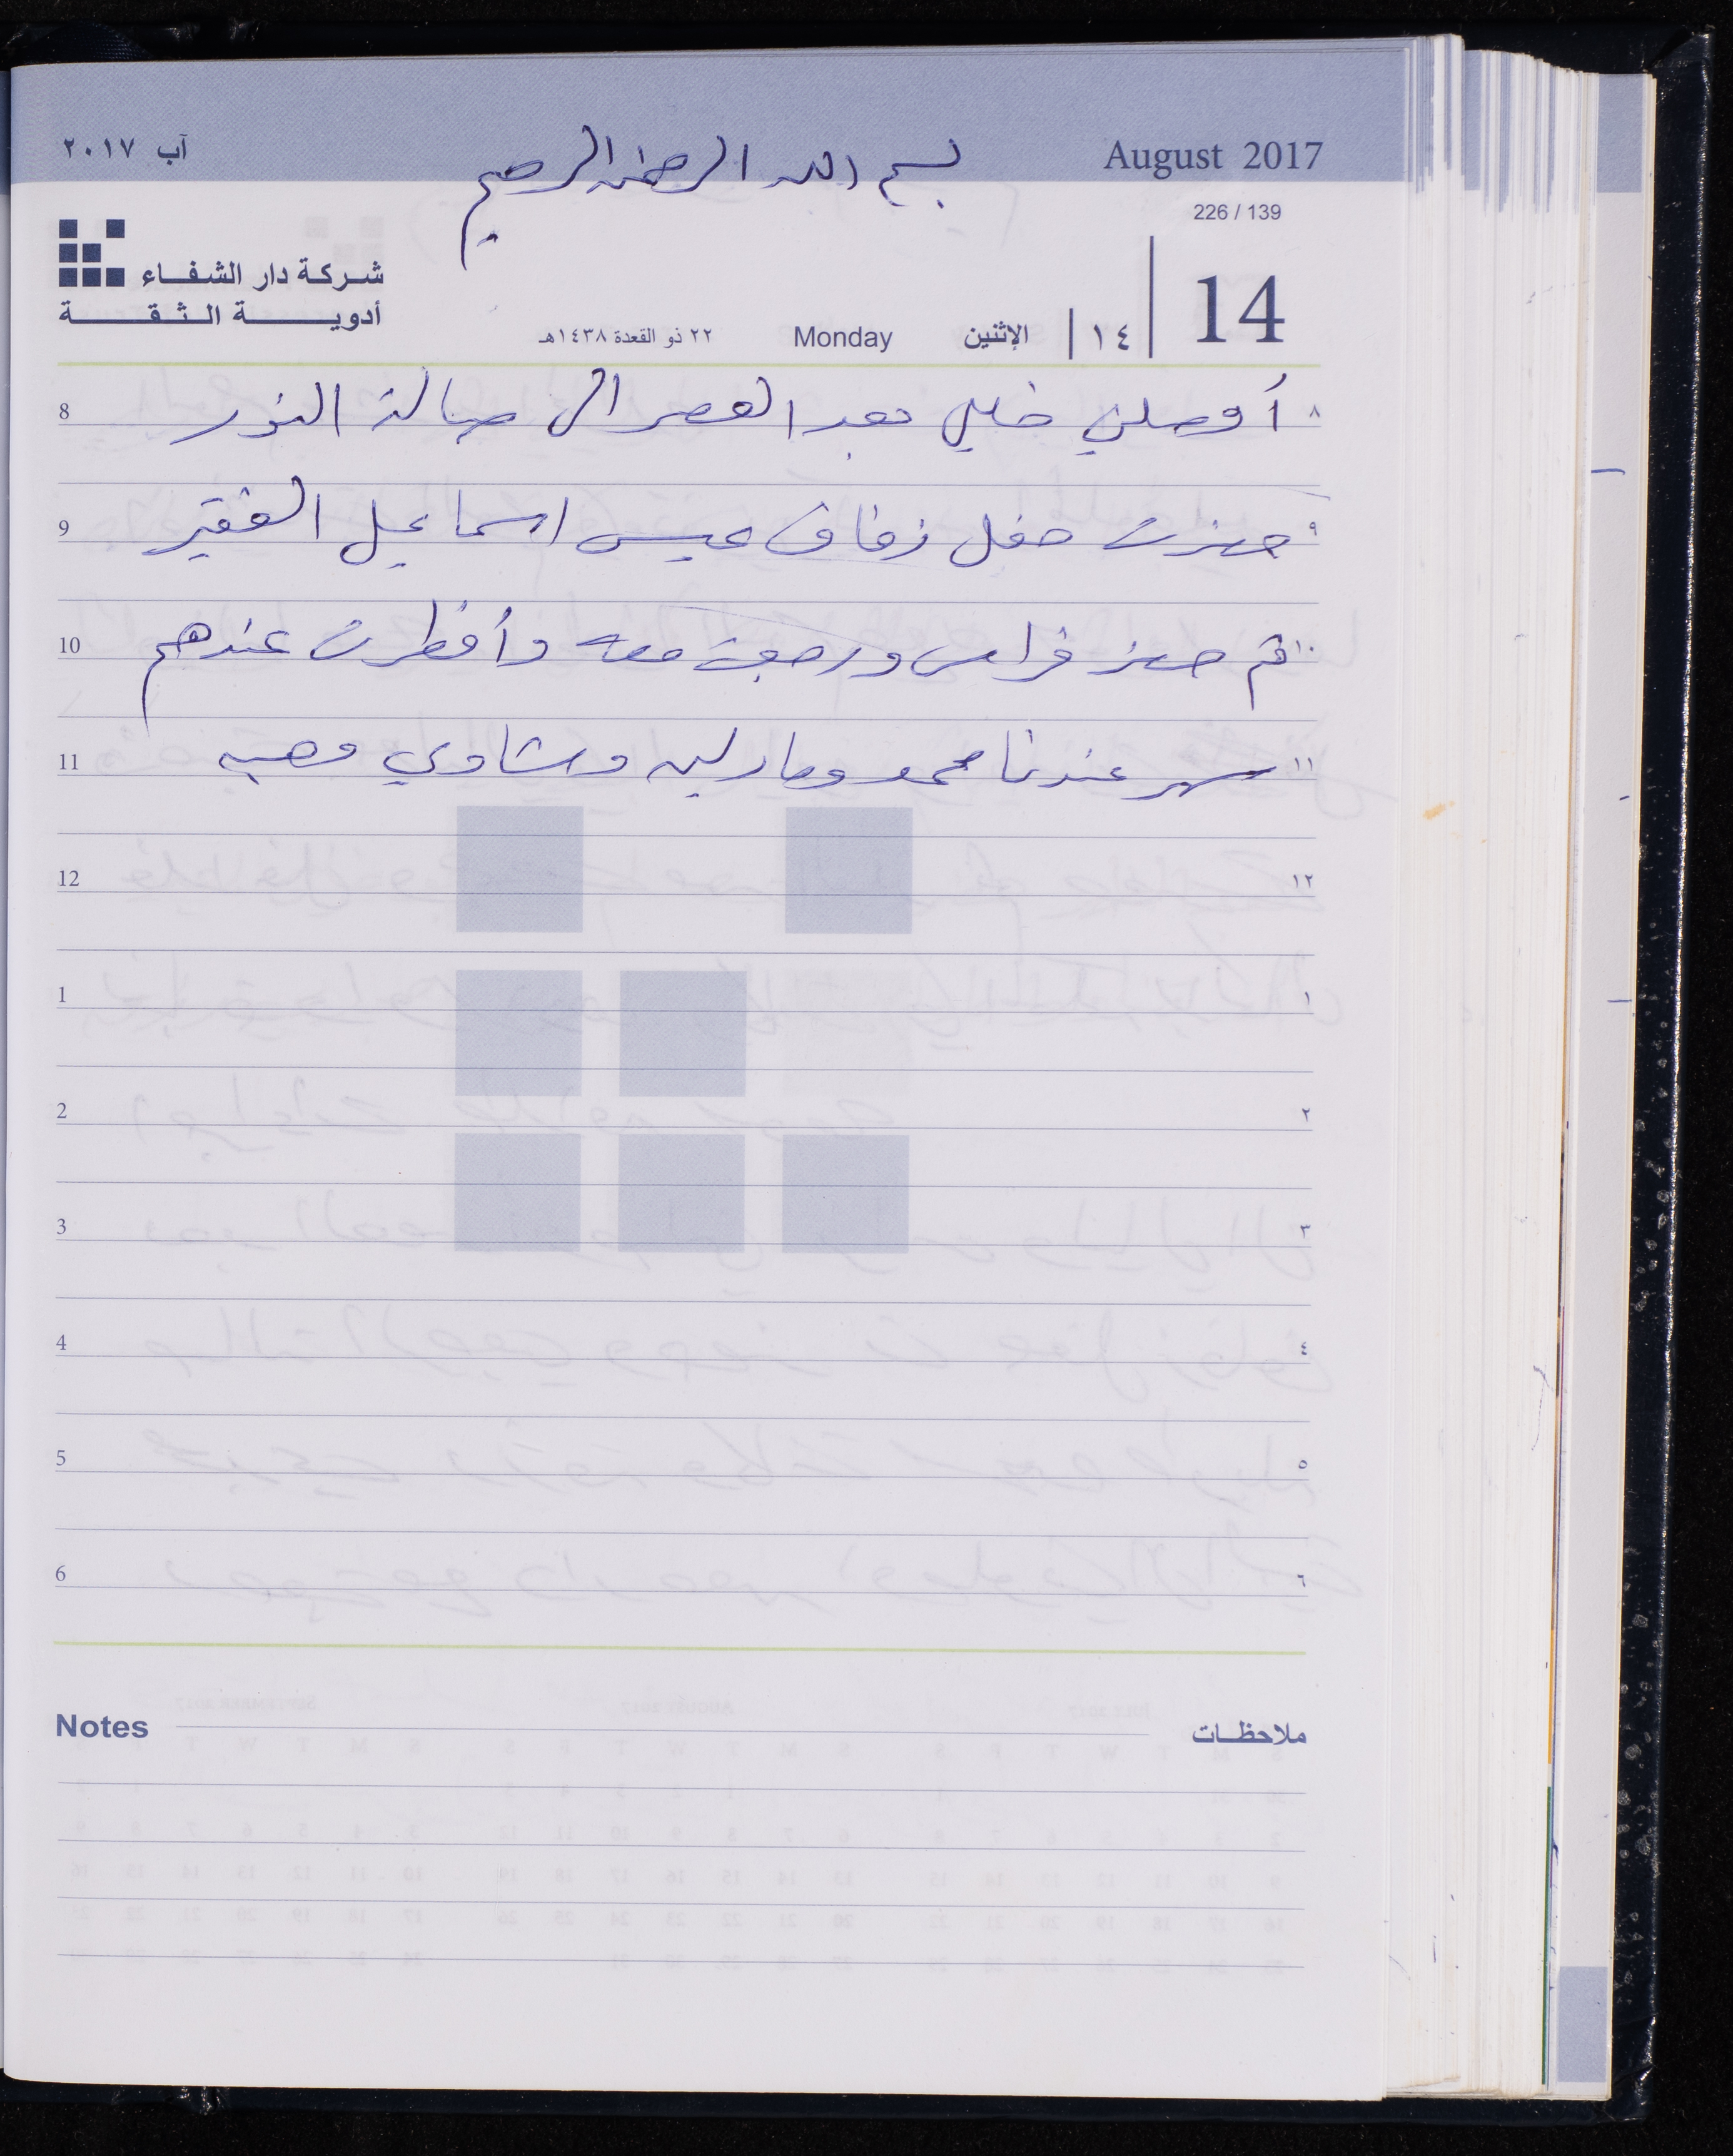 آب ٢٠١٧
بسم الله الرحمن الرحيم
August 2017
226 / 139
شركة دار الشفاء
أدوية الثقة
14
١٤
الإثنين
Monday
٢٢ ذو القعدة ١٤٣٨هـ
8 أوصلني خليل بعد العصر الى صالة النور ٨
9 حضرت حفل زفاف عيسى اسماعيل الفقير ٩
10 ثم حضر فراس ورجعت معه وأفطرت عندهم ١٠
11 سهر عندنا محمد ومادلين وشاوي وهبه ١١
12 ١٢
1 ١
2 ٢
3 ٣
4 ٤
5 ٥
6 ٦
Notes ملاحظات